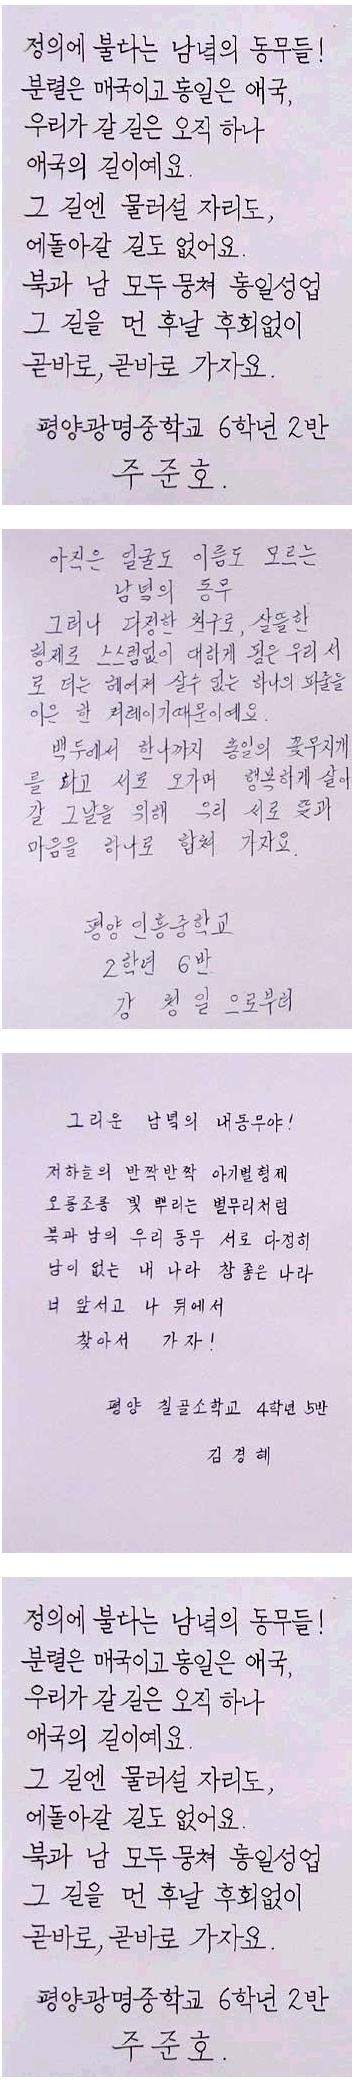 정의에 불타는 남녘의 동무들!
분렬은 매국이고 통일은 애국,
우리가 갈 길은 오직 하나
애국의 길이예요.
그 길엔 물러설 자리도,
에돌아갈 길도 없어요.
북과 남 모두 뭉쳐 통일성업
그 길을 먼 후날 후회없이
곧바로, 곧바로 가자요.
평양광명중학교 6학년 2반
주준호.
아직은 얼굴도 이름도 모르는
남녘의 동무
그러나 다정한 친구로, 살뜰한
형제로 스스럼없이 대하게 됨은 우리 서
로 더는 헤여져 살수 없는 하나의 피줄을
이은 한 겨레이기때문이예요.
백두에서 한나까지 통일의 꽃무지개
를 타고 서로 오가며 행복하게 살아
갈 그날을 위해 우리 서로 뜻과
마음을 하나로 합쳐 가자요.
평양인흥중학교
2학년 6반
강 일으로부터
그리운 남녘의 내동무야!
저하늘의 반짝반짝 아기별형제
오롱조롱 빛 뿌리는 별무리처럼
북과 남의 우리 동무 서로 다정히
남이 없는 내 나라 참 좋은 나라
너 앞서고 나 뒤에서
찾아서 가자!
평양 칠골소학교 4학년 5반
김경혜
정의에 불타는 남녘의 동무들!
분렬은 매국이고 통일은 애국,
우리가 갈 길은 오직 하나
애국의 길이예요.
그 길엔 물러설 자리도,
에돌아갈 길도 없어요.
북과 남 모두 뭉쳐 통일성업
그 길을 먼 후날 후회없이
곧바로, 곧바로 가자요.
평양광명중학교 6학년 2반
주준호.